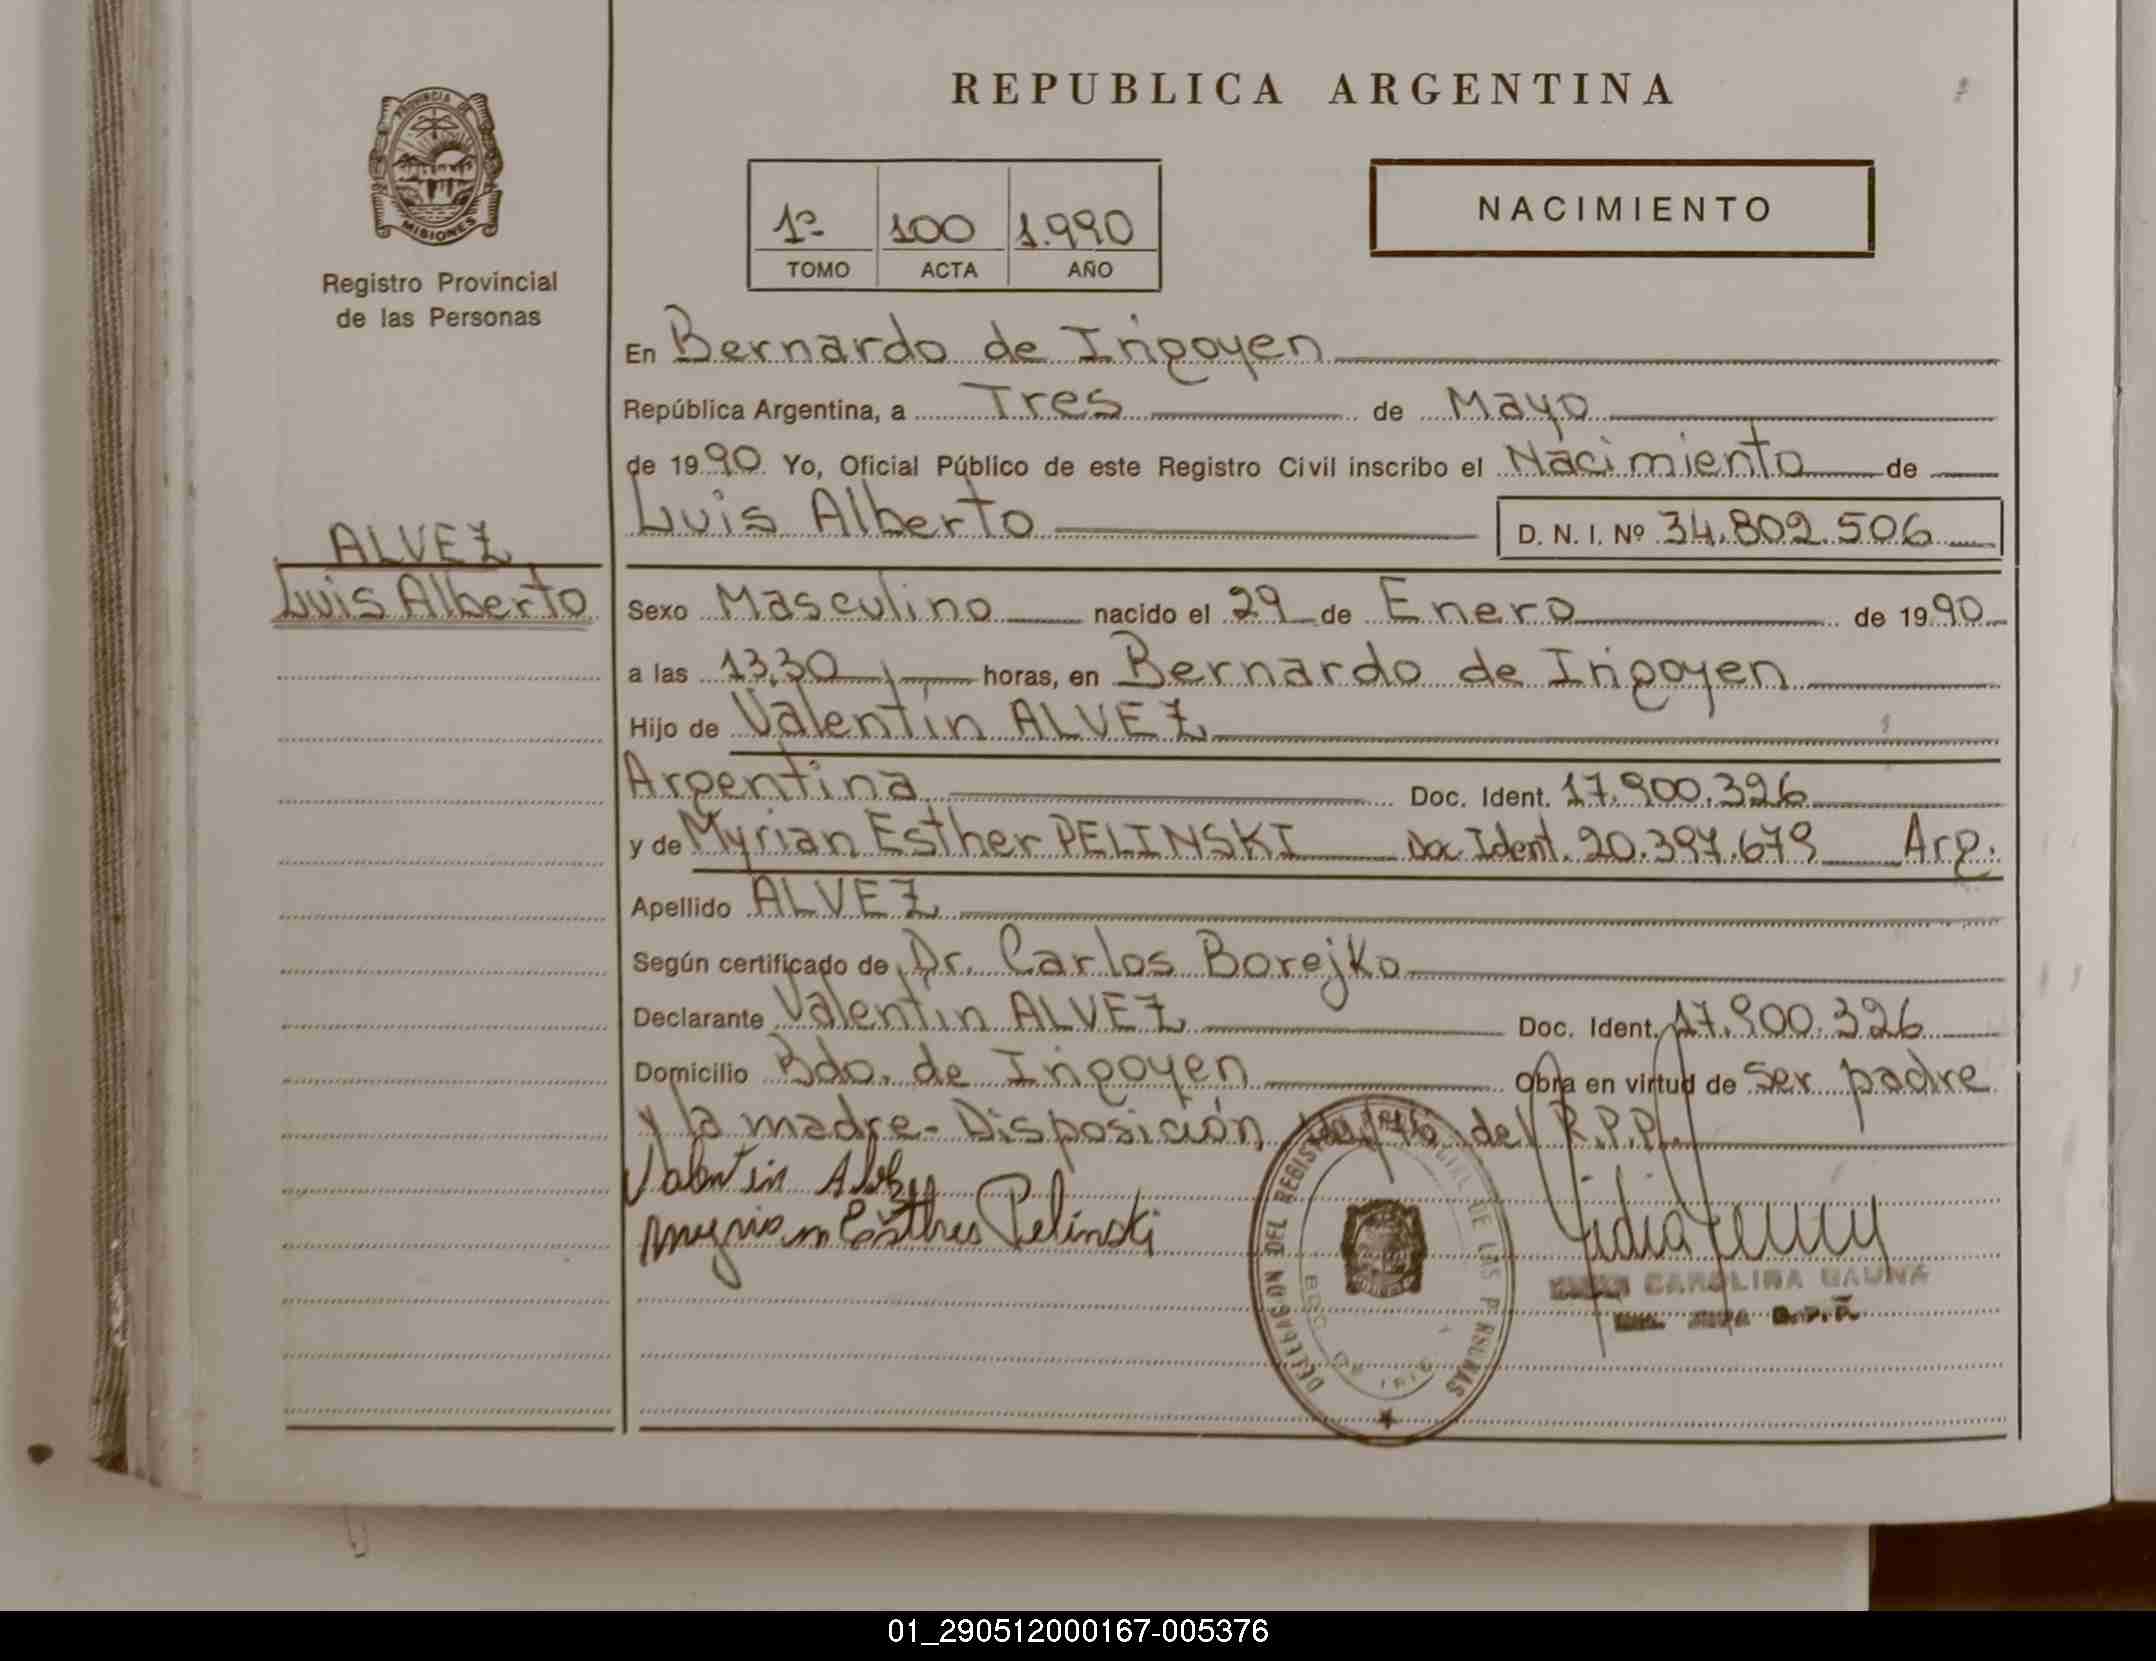 PROVINCIA DE
MISIONES
Registro Provincial
de las Personas
REPUBLICA ARGENTINA
1º 100 1.990
TOMO ACTA AÑO
NACIMIENTO
En Bernardo de Irigoyen
República Argentina, a Tres de Mayo
de 1990 Yo, Oficial Público de este Registro Civil inscribo el Nacimiento de
Luis Alberto D. N. I. Nº 34.802.506
ALVEZ
Luis Alberto
Sexo Masculino nacido el 29 de Enero de 1990
a las 13,30 horas, en Bernardo de Irigoyen
Hijo de Valentín ALVEZ
Argentina Doc. Ident. 17.900.326
y de Myrian Esther PELINSKI Doc Ident. 20.397.679 Arg.
Apellido ALVEZ
Según certificado de Dr. Carlos Borejko
Declarante Valentín ALVEZ Doc. Ident. 17.900.326
Domicilio Bdo. de Irigoyen Obra en virtud de ser padre
y la madre- Disposición del R.P.P.
Valentin
Esther Pelinski
DELEGACION DEL REGISTRO PROVINCIAL DE LAS PERSONAS
BDO DE IRIG
CAROLINA GAUNA
R.P.P.
01_290512000167-005376